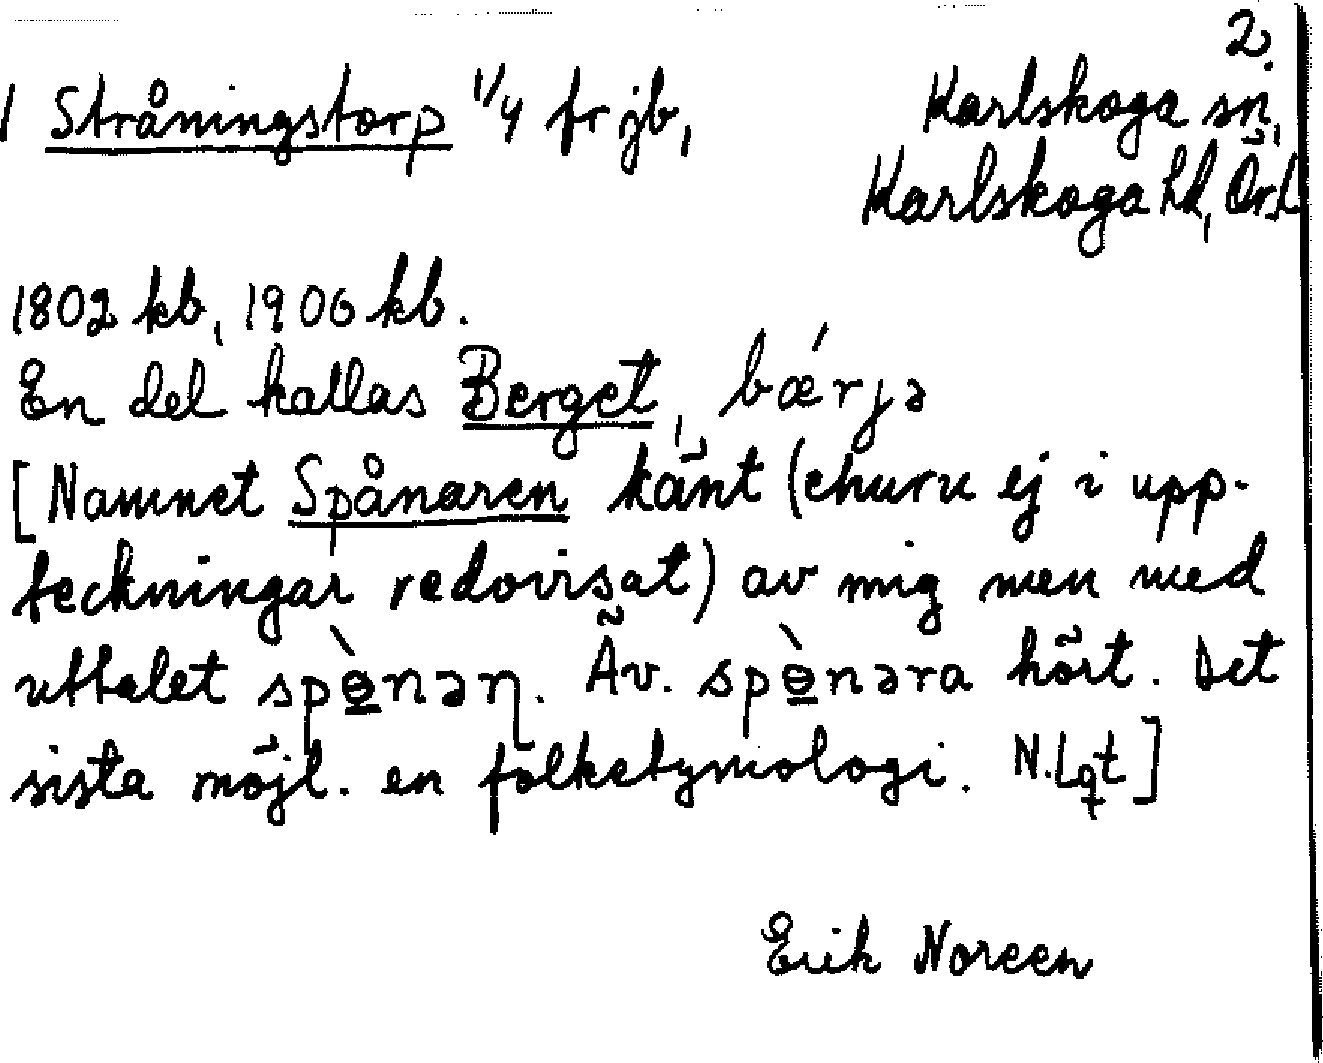 2.
1 Stråningstorp 1/4 fr jb, Karlskoga sn,
Karlskoga hd, Ör.l.
1802 kb, 1906 kb.
En del kallas Berget, bǽrjə
[Namnet Spånaren känt (ehuru ej i upp-
teckningar redovisat) av mig men med
uttalet spɵ̀nəɳ. Äv. spɵ̀nəra hört. Det
sista möjl. en folketymologi. N.Lqt]
Erik Noreen